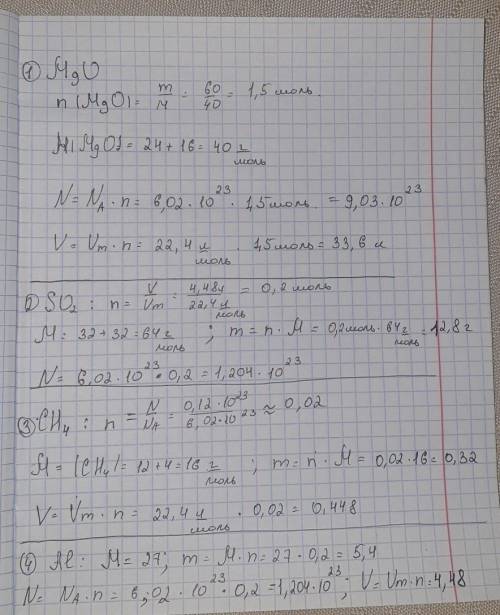 ① MgO
n(MgO) = m/M = 60/40 = 1,5 моль.
M(MgO) = 24 + 16 = 40 г/моль
N = N_A · n = 6,02 · 10²³ · 1,5 моль = 9,03 · 10²³
V = Vm · n = 22,4 л/моль · 1,5 моль = 33,6 л
② SO₂ : n = V/Vm = 4,48л/22,4 л/моль = 0,2 моль
M = 32 + 32 = 64 г/моль ; m = n · M = 0,2 моль · 64 г/моль = 12,8 г
N = 6,02 · 10²³ · 0,2 = 1,204 · 10²³
③ CH₄ : n = N/N_A = 0,12 · 10²³/6,02 · 10²³ ≈ 0,02
M = (CH₄) = 12 + 4 = 16 г/моль ; m = n · M = 0,02 · 16 = 0,32
V = Vm · n = 22,4 л/моль · 0,02 = 0,448
④ Al : M = 27 ; m = M · n = 27 · 0,2 = 5,4
N = N_A · n = 6,02 · 10²³ · 0,2 = 1,204 · 10²³ ; V = Vm · n = 4,48